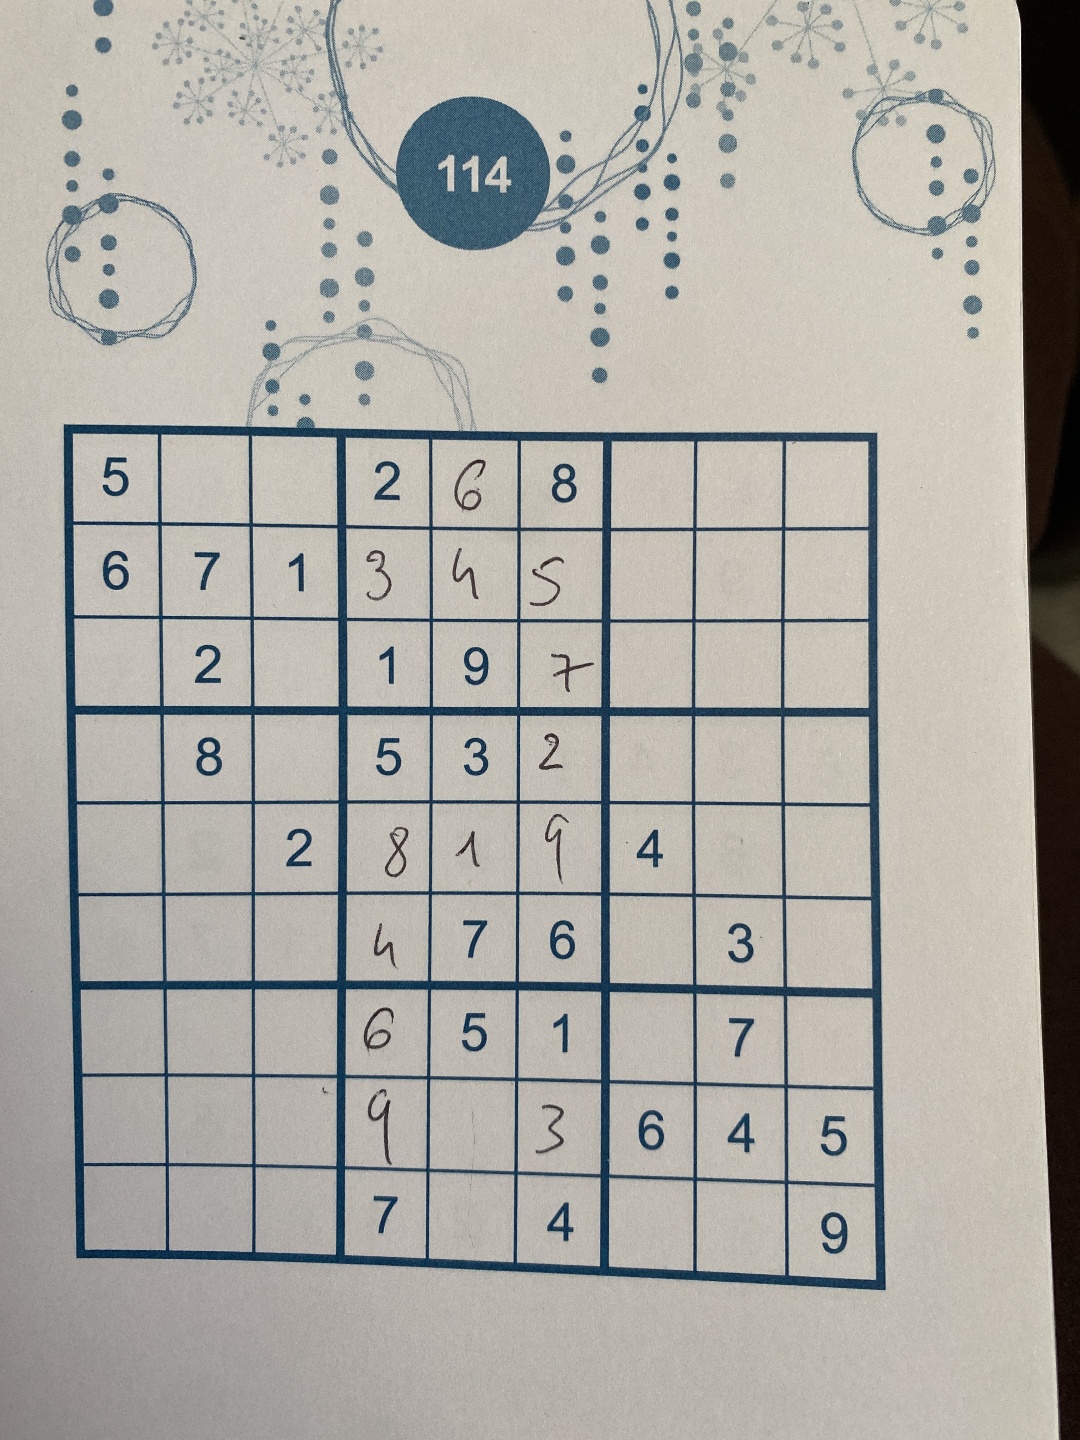 114
5 2 6 8
6 7 1 3 4 5
2 1 9 7
8 5 3 2
2 8 1 9 4
4 7 6 3
6 5 1 7
9 3 6 4 5
7 4 9